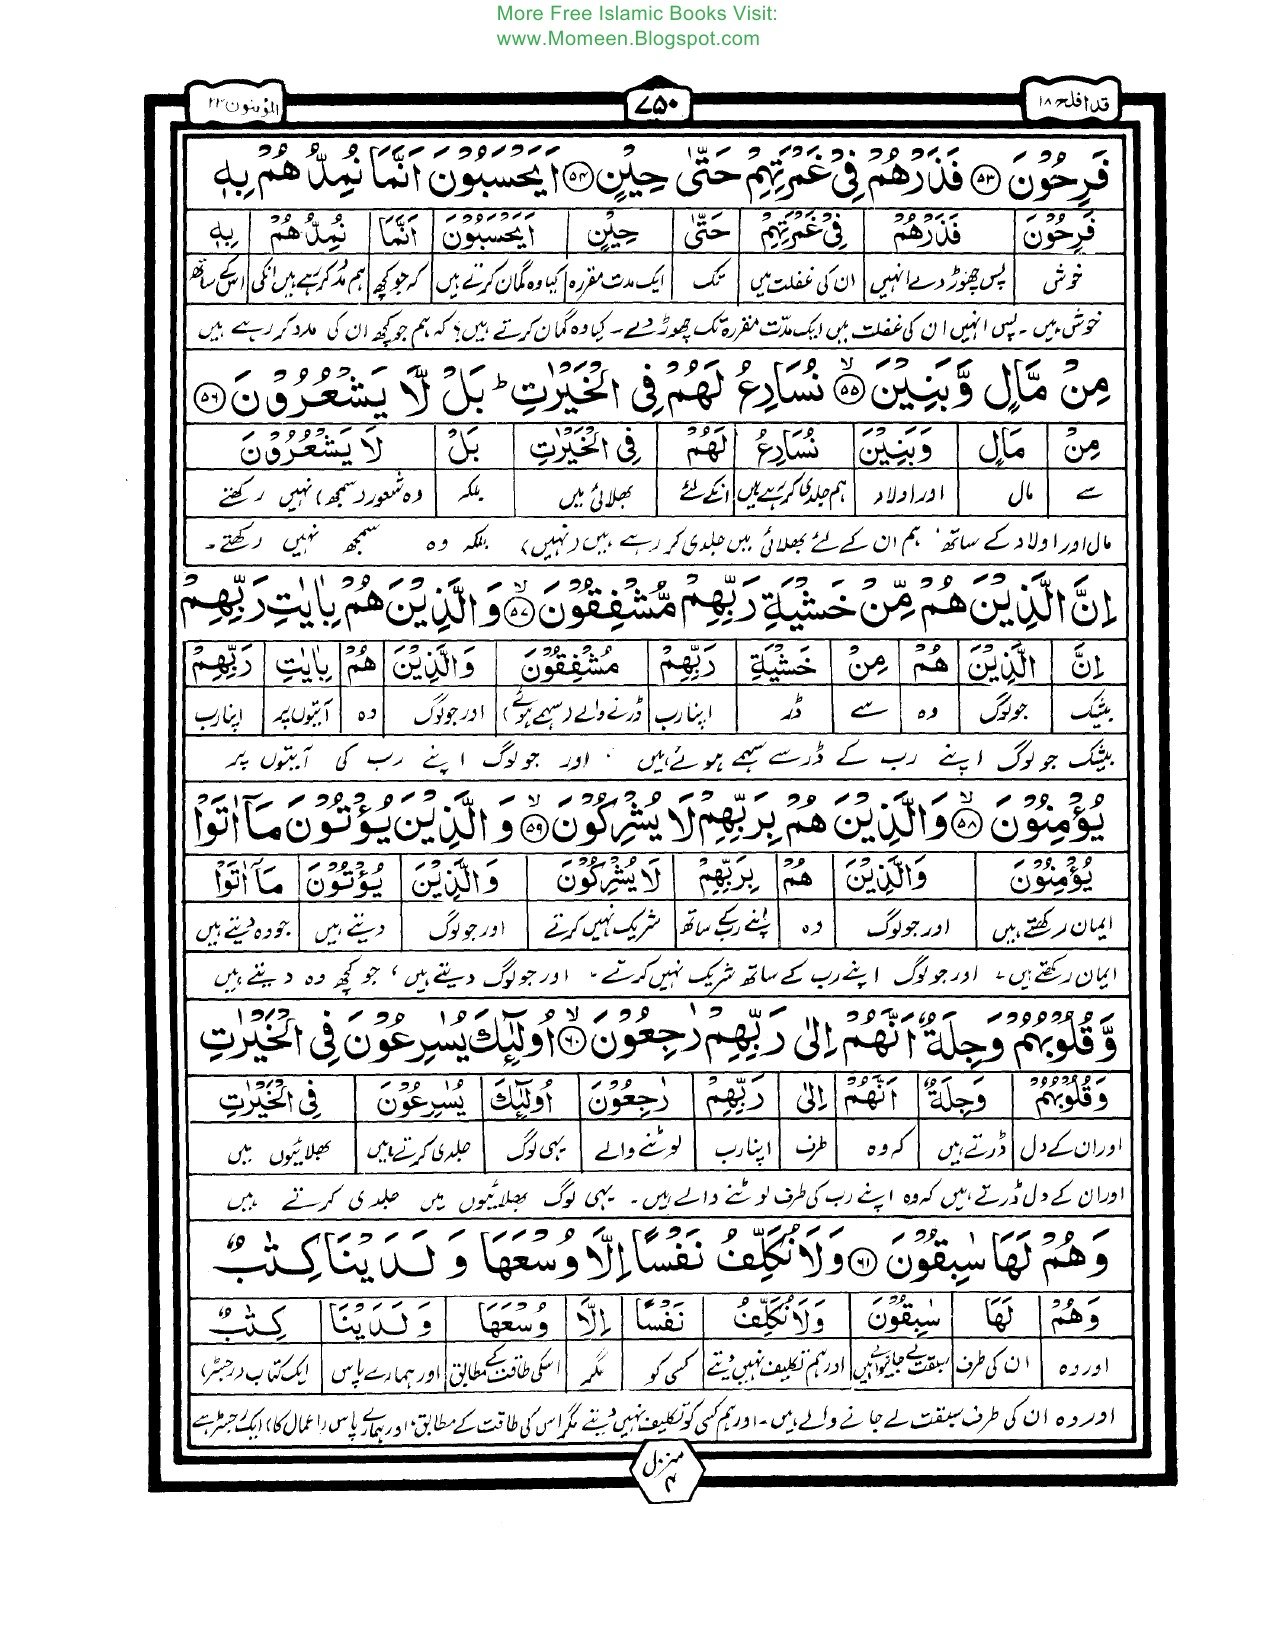 More Free Islamic Books Visit:
www.Momeen.Blogspot.com
قد افلح ۱۸
۷۵۰
المؤمنون ۲۳
فَرِحُوْنَ ﴿۵۳﴾ فَذَرْهُمْ فِيْ غَمْرَتِهِمْ حَتّٰى حِيْنٍ ﴿۵۴﴾ اَيَحْسَبُوْنَ اَنَّمَا نُمِدُّهُمْ بِهٖ
فَرِحُوْنَ | فَذَرْهُمْ | فِيْ غَمْرَتِهِمْ | حَتّٰى | حِيْنٍ | اَيَحْسَبُوْنَ | اَنَّمَا | نُمِدُّهُمْ | بِهٖ
خوش | پس چھوڑ دے انہیں | ان کی غفلت میں | تک | ایک مدت مقررہ | کیا وہ گمان کرتے ہیں | کہ جو کچھ | ہم مدد کر رہے ہیں انکی | اسکے ساتھ
خوش ہیں ۔ پس انہیں ان کی غفلت میں ایک مدّت مقررہ تک چھوڑ دے ۔ کیا وہ گمان کرتے ہیں؟ کہ ہم جو کچھ ان کی مدد کر رہے ہیں
مِنْ مَّالٍ وَّبَنِيْنَ ﴿۵۵﴾ نُسَارِعُ لَهُمْ فِي الْخَيْرٰتِ ؕ بَلْ لَّا يَشْعُرُوْنَ ﴿۵۶﴾
مِنْ | مَالٍ | وَبَنِيْنَ | نُسَارِعُ | لَهُمْ | فِي الْخَيْرٰتِ | بَلْ | لَا يَشْعُرُوْنَ
سے | مال | اور اولاد | ہم جلدی کر رہے ہیں | انکے لئے | بھلائی میں | بلکہ | وہ شعور (سمجھ) نہیں رکھتے
مال اور اولاد کے ساتھ، ہم ان کے لئے بھلائی میں جلدی کر رہے ہیں (نہیں) بلکہ وہ سمجھ نہیں رکھتے ۔
اِنَّ الَّذِيْنَ هُمْ مِّنْ خَشْيَةِ رَبِّهِمْ مُّشْفِقُوْنَ ﴿۵۷﴾ وَالَّذِيْنَ هُمْ بِاٰيٰتِ رَبِّهِمْ
اِنَّ | الَّذِيْنَ | هُمْ | مِنْ | خَشْيَةِ | رَبِّهِمْ | مُشْفِقُوْنَ | وَالَّذِيْنَ | هُمْ | بِاٰيٰتِ | رَبِّهِمْ
بیشک | جو لوگ | وہ | سے | ڈر | اپنا رب | ڈرنے والے (سہمے ہوئے) | اور جو لوگ | وہ | آیتوں پر | اپنا رب
بیشک جو لوگ اپنے رب کے ڈر سے سہمے ہوئے ہیں ۔ اور جو لوگ اپنے رب کی آیتوں پر
يُؤْمِنُوْنَ ﴿۵۸﴾ وَالَّذِيْنَ هُمْ بِرَبِّهِمْ لَا يُشْرِكُوْنَ ﴿۵۹﴾ وَالَّذِيْنَ يُؤْتُوْنَ مَآ اٰتَوْا
يُؤْمِنُوْنَ | وَالَّذِيْنَ | هُمْ | بِرَبِّهِمْ | لَا يُشْرِكُوْنَ | وَالَّذِيْنَ | يُؤْتُوْنَ | مَآ اٰتَوْا
ایمان رکھتے ہیں | اور جو لوگ | وہ | اپنے رب کے ساتھ | شریک نہیں کرتے | اور جو لوگ | دیتے ہیں | جو وہ دیتے ہیں
ایمان رکھتے ہیں ۔ اور جو لوگ اپنے رب کے ساتھ شریک نہیں کرتے ۔ اور جو لوگ دیتے ہیں، جو کچھ وہ دیتے ہیں
وَّقُلُوْبُهُمْ وَجِلَةٌ اَنَّهُمْ اِلٰى رَبِّهِمْ رٰجِعُوْنَ ﴿۶۰﴾ اُولٰٓئِكَ يُسٰرِعُوْنَ فِي الْخَيْرٰتِ
وَقُلُوْبُهُمْ | وَجِلَةٌ | اَنَّهُمْ | اِلٰى | رَبِّهِمْ | رٰجِعُوْنَ | اُولٰٓئِكَ | يُسٰرِعُوْنَ | فِي الْخَيْرٰتِ
اور ان کے دل | ڈرتے ہیں | کہ وہ | طرف | اپنا رب | لوٹنے والے | یہی لوگ | جلدی کرتے ہیں | بھلائیوں میں
اور ان کے دل ڈرتے ہیں کہ وہ اپنے رب کی طرف لوٹنے والے ہیں ۔ یہی لوگ بھلائیوں میں جلدی کرتے ہیں
وَهُمْ لَهَا سٰبِقُوْنَ ﴿۶۱﴾ وَلَا نُكَلِّفُ نَفْسًا اِلَّا وُسْعَهَا وَلَدَيْنَا كِتٰبٌ
وَهُمْ | لَهَا | سٰبِقُوْنَ | وَلَا نُكَلِّفُ | نَفْسًا | اِلَّا | وُسْعَهَا | وَلَدَيْنَا | كِتٰبٌ
اور وہ | ان کی طرف | سبقت لے جانیوالے ہیں | اور ہم تکلیف نہیں دیتے | کسی کو | مگر | اسکی طاقت کے مطابق | اور ہمارے پاس | ایک کتاب (رجسٹر)
اور وہ ان کی طرف سبقت لے جانے والے ہیں ۔ اور ہم کسی کو تکلیف نہیں دیتے مگر اس کی طاقت کے مطابق، اور ہمارے پاس (اعمال کا) ایک رجسٹر ہے
منزل ۴